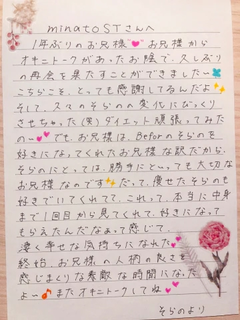 minatoSTさんへ
1年ぶりのお兄様 お兄様から
オキニトークがあったお陰で、久しぶり
の再会を果たすことができました〜
こちらこそ、とっても感謝してるんだよ
そして、久々のそらのの変化にびっくり
させちゃった(笑)ダイエット頑張ってみたの
〜 でも、お兄様は、Beforのそらのを
好きになってくれたお兄様な訳だから、
そらのにとっては、勝手にとっても大切な
お兄様なのです だって、痩せたそらのも
好きでいてくれてて、これって、本当に中身
まで1回目から見てくれて、好きになって
もらえたんだなぁって感じて、
凄く幸せな気持ちになれた
終始、お兄様の人柄の良さを
感じまくりな素敵な時間になった
よ〜 またオキニトークしてね
そらのより